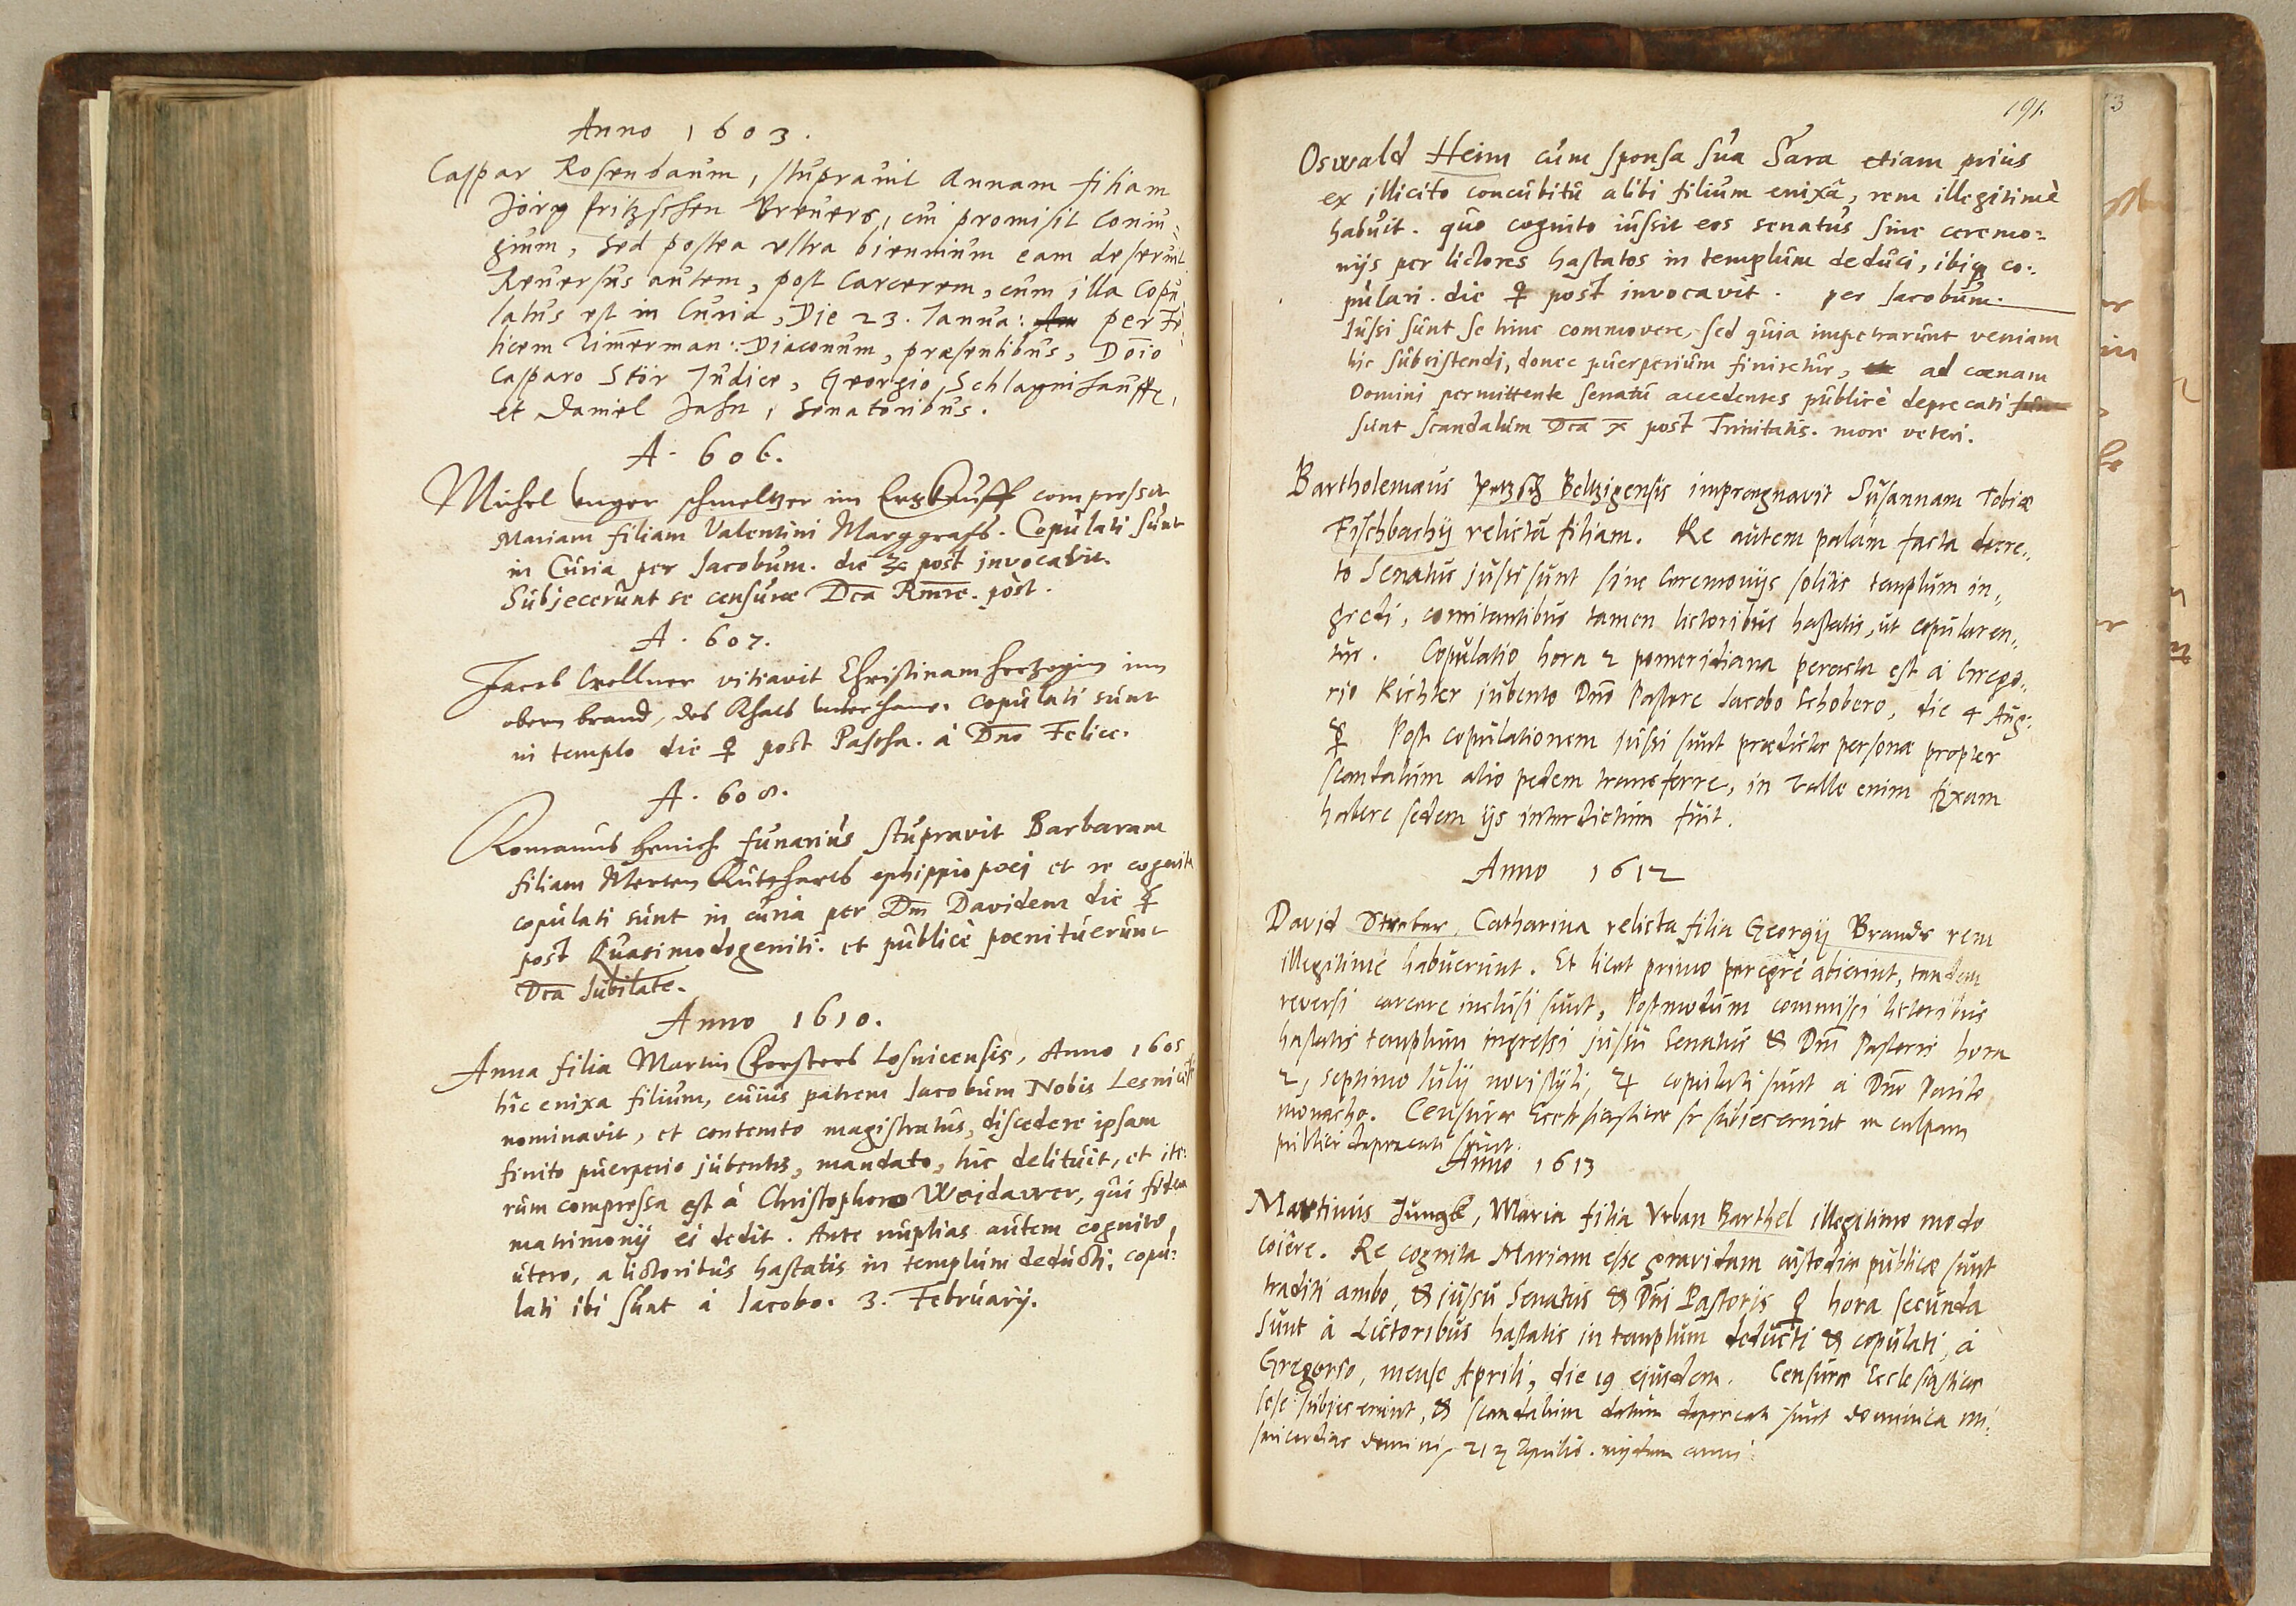 Anno 1603.
Caspar Rosenbaum, stupravit Annam filiam
Jörg fritzschen Breuers, cui promisit Coniu=
gium, Sed postea ultra biennium eam deseruit
Reuersus autem, post Carcerem, cum illa Copu
latus est in Curia, Die 23. Janua: per Fe
licem Zimerman: Diaconum, præsentibus, Doio
Casparo Stör Judice, Georgio Schlaginhauffe,
et Daniel Jahn, Senatoribus.
A. 606.
Michel Unger schmeltzer im compressit
Mariam filiam Valentini Marggrafs. Copulati sunt
in Curia per Jacobum. die post invocavit.
Subjecerunt se censuræ Dca Rmre. post.
A. 607.
Jacob Crellner vitiavit Christinam hertzogin im
obern brand, des copulati sunt
in templo die ♀ post Pascha. à Dno Felice.
A. 608.
Romanus Henich funarius stupravit Barbaram
filiam Merten ephippiopoei et re cognita
copulati sunt in curia per Dm Davidem die ☿
post Quasimodogeniti. et publicè poenituerunt
Dca Jubilate.
Anno 1610.
Anna filia Martin Forsters Losnicensis, Anno 1605
hic enixa filium, cuius patrem Jacobum Nobis Lesnicens
nominavit, et contemto magistratus, discedere ipsam
finito puerperio jubentis, mandato, hic delituit, et ite:
rum compressa est à Christophoro Weidawer, qui fidem
matrimonij ei dedit. Ante nuptias autem cognito,
utero, a lictoribus hastatis in templum deducti, copu:
lati ibi sunt à Jacobo. 3. Februarij.
191.
Oswald Heim cum sponsa sua Sara etiam prius
ex illicito concubitu alibi filium enixâ, rem illegitimè
habuit. quo cognito iussit eos senatus sine ceremo=
nijs per lictores hastatos in templum deduci, ibiq co:
pulari. die ♀ post invocavit. per Jacobum.
Jussi sunt se hinc commovere, sed quia impetrarunt veniam
hic subsistendi, donec puerperium finiretur, ad cœnam
Domini permittente senatu accedentes publicè deprecati
sunt scandalum Dca X post Trinitatis. more veteri.
Bartholemæus Petzsch Beltzigensis imprægnavit Susannam Tobiæ
Fischbachij relictâ filiam. Re autem palam facta decre„
to Senatus jussi sunt sine Ceremonijs solitis templum in„
gredi, comitantibus tamen lictoribus hastatis, ut copularen„
tur. Copulatio hora 2 pomeridiana peracta est à Grego„
rio Richter jubente Dno Pastore Jacobo Schobero, die 4 Aug:
☿ Post copulationem jussi sunt prædictæ personæ propter
scandalum alio pedem transferre, in Valle enim fixam
habere sedem ijs interdictum fuit.
Anno 1612
David Catharina relicta filia Georgij Brands rem
illegitimè habuerunt. Et licet primo peregrè abierint, tandem
reversi carcere inclusi sunt, Postmodum commissi lictoribus
hastatis templum ingressi jussu Senatus & Dni Pastoris hora
2, septimo Julij novi styli, ♃ copulati sunt à Dno Davide
monacho. Censuræ Ecclesiasticæ se subjecerunt culpam
publicè deprecati sunt.
Anno 1613
Martinus Jungk, Maria filia Urban Barthel illegitimo modo
coiêre. Re cognita Mariam esse gravidam custodiæ publicæ sunt
traditi ambo, & jussu Senatus & Dni Pastoris ♀ hora secunda
sunt à Lictoribus hastatis in templum deducti & copulati, à
Gregorio, mense Aprili, die 19 ejusdem. Censuræ Ecclesiasticæ
sese subjecerunt, & scandalum datum deprecati sunt dominica mi:
sericordias domini, Aprilis. anni